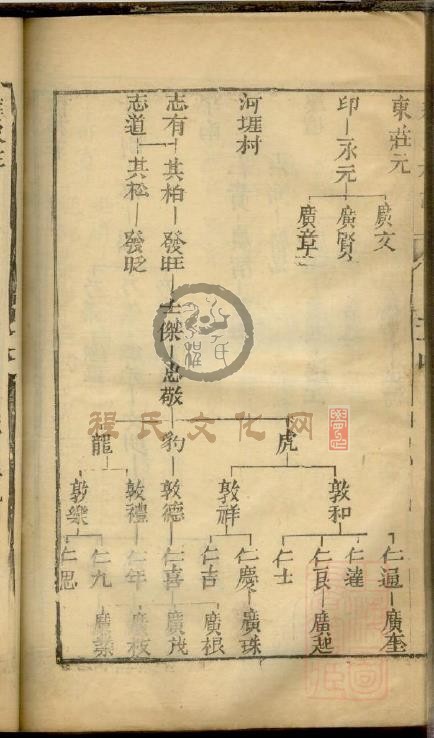 東莊元
印 永元
廣文 廣賢 廣章
河堐村
志有 其柏 發旺 士傑 忠敬
志道 其松 發旼
虎 豹 龍
敦和 敦祥 敦德 敦禮 敦樂
仁逼 仁達 仁良 仁士 仁慶 仁吉 仁喜 仁年 仁九 仁思
廣奎 廣起 廣珠 廣根 廣茂 廣枝 廣業
程氏文化网